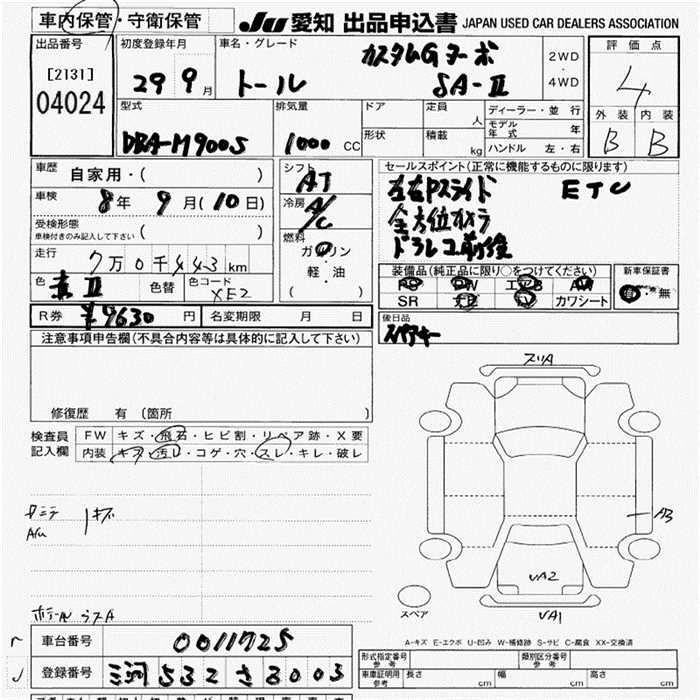 車内保管・守衛保管 JU 愛知 出品申込書 JAPAN USED CAR DEALERS ASSOCIATION
出品番号 [2131] 04024
初度登録年月 29 9月
車名・グレード トール カスタムGターボ SA-Ⅱ
2WD・4WD
評価点 4
外装 内装
B B
型式 DBA-M900S
排気量 1000 CC
ドア 定員 人
形状 積載 kg
ディーラー・並行
モデル年式 年
ハンドル 左・右
車歴 自家用・( )
車検 8年 9月(10日)
受検形態 車検付きのみ記入して下さい ( )
走行 7万0千443km
色 赤Ⅱ 色替 色コード XE2
シフト AT
冷房 A/C
燃料 ガソリン・軽・油 ( )
セールスポイント(正常に機能するものに限ります)
左右Pスライド ETC
全方位カメラ
ドラレコ前後
装備品(純正品に限り○をつけてください)
PS PW エアB AW
SR ナビ TV カワシート
新車保証書 有・無
R券 ¥9630円 名変期限 月 日
後日品
スペアキー
注意事項申告欄(不具合内容等は具体的に記入して下さい)
修復歴 有(箇所 )
検査員記入欄 FW キズ・飛石・ヒビ割・リペア跡・X要
内装 キズ・汚レ・コゲ・穴・スレ・キレ・破レ
スリA
A3
VA2
VA1
スペア
A-キズ E-エクボ U-凹み W-補修跡 S-サビ C-腐食 XX-交換済
車台番号 0011725
登録番号 三河532さ8003
形式指定番号 参考 類別区分番号 参考
車庫証明用 参考 長さ cm 幅 cm 高さ cm